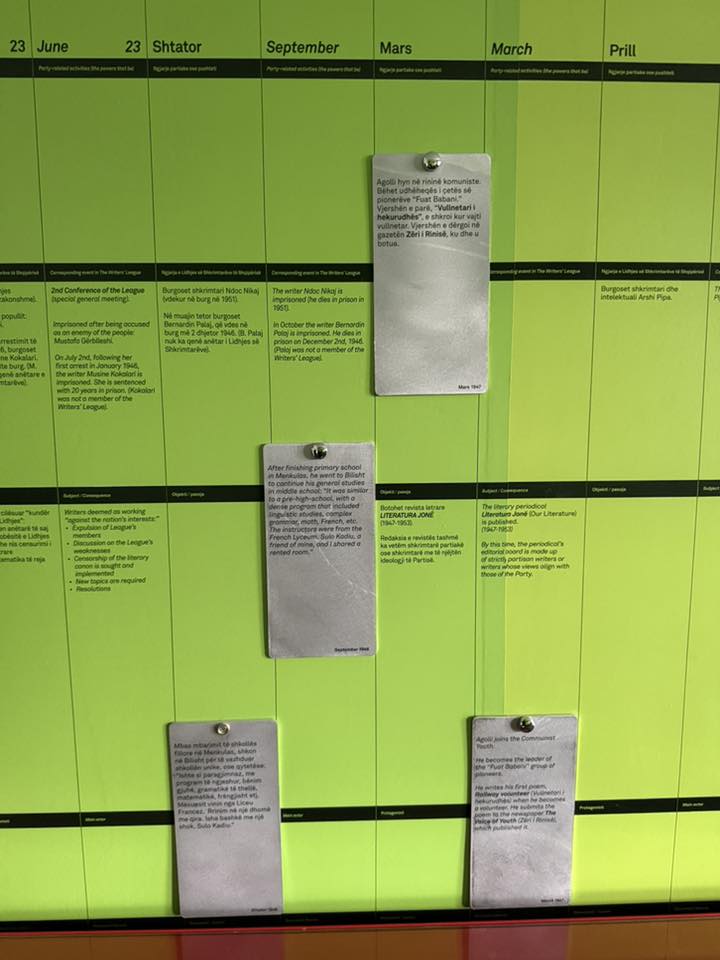 23 June 23
Shtator
September
Mars
March
Prill
Party-related activities (the powers that be)
Ngjarje partiake ose pushteti
Party-related activities (the powers that be)
Ngjarje partiake ose pushteti
Party-related activities (the powers that be)
Ngjarje partiake ose pushteti
Agolli hyn në rininë komuniste.
Bëhet udhëheqës i çetës së
pionerëve "Fuat Babani."
Vjershën e parë, "Vullnetari i
hekurudhës", e shkroi kur vajti
vullnetar. Vjershën e dërgoi në
gazetën Zëri i Rinisë, ku dhe u
botua.
Mars 1947
Corresponding event in The Writers' League
Ngjarja e Lidhjes së Shkrimtarëve të Shqipërisë
Corresponding event in The Writers' League
corresponding event in The Writers' League
Ngjarja e Lidhjes së Shkrimtarëve të Shqipërisë
2nd Conference of the League
(special general meeting).
Imprisoned after being accused
as an enemy of the people:
Mustafa Gërblleshi.
On July 2nd, following her
first arrest in January 1946,
the writer Musine Kokalari is
imprisoned. She is sentenced
with 20 years in prison. (Kokalari
was not a member of the
Writers' League).
Burgoset shkrimtari Ndoc Nikaj
(vdekur në burg në
1951).
Në muajin tetor burgoset
Bernardin Palaj, që vdes në
burg më 2 dhjetor 1946. (B. Palaj
nuk ka qenë anëtar i Lidhjes së
Shkrimtarëve).
The writer Ndoc Nikaj is
imprisoned (he dies in prison in
1951).
In October the writer Bernardin
Palaj is imprisoned. He dies in
prison on December 2nd, 1946.
(Palaj was not a member of the
Writers' League).
Burgoset shkrimtari dhe
intelektuali Arshi Pipa.
Subject / Consequence
Objekti / pasoja
Subject / Consequence
Objekti / pasoja
Subject
Writers deemed as working
"against the nation's interests:"
• Expulsion of League's
members
• Discussion on the League's
weaknesses
• Censorship of the literary
canon is sought and
implemented
• New topics are required
• Resolutions
After finishing primary school
in Menkulas, he went to Bilisht
to continue his general studies
in middle school: "It was similar
to a pre-high-school, with a
dense program that included
linguistic studies, complex
grammar, math, French, etc.
The instructors were from the
French Lyceum. Sulo Kadiu, a
friend of mine, and I shared a
rented room."
September 1946
Botohet revista letrare
LITERATURA JONË
(1947-1953).
Redaksia e revistës tashmë
ka vetëm shkrimtarë partiakë
ose shkrimtarë me të njëjtën
ideologji të Partisë.
The literary periodical
Literatura Jonë (Our Literature)
is published.
(1947-1953)
By this time, the periodical's
editorial board is made up
of strictly partisan writers or
writers whose views align with
those of the Party.
Mbas mbarimit të shkollës
fillore në Menkulas, shkon
në Bilisht për të vazhduar
shkollën unike, ose qytetëse:
"Ishte si paragjimnaz, me
program të ngjeshur, bënim
gjuhë, gramatikë të thellë,
matematikë, frëngjisht etj.
Mësuesit vinin nga Liceu
Francez. Rrinim në një dhomë
me qira. Isha bashkë me një
shok, Sulo Kadiu."
Shtator 1946
Agolli joins the Communist
Youth.
He becomes the leader of
the "Fuat Babani" group of
pioneers.
He writes his first poem,
Railway volunteer (Vullnetari i
hekurudhës) when he becomes
a volunteer. He submits the
poem to the newspaper The
Voice of Youth (Zëri i Rinisë),
which published it.
March 1947
Main actor
Main actor
Protagonisti
Protagonisti
Main actor